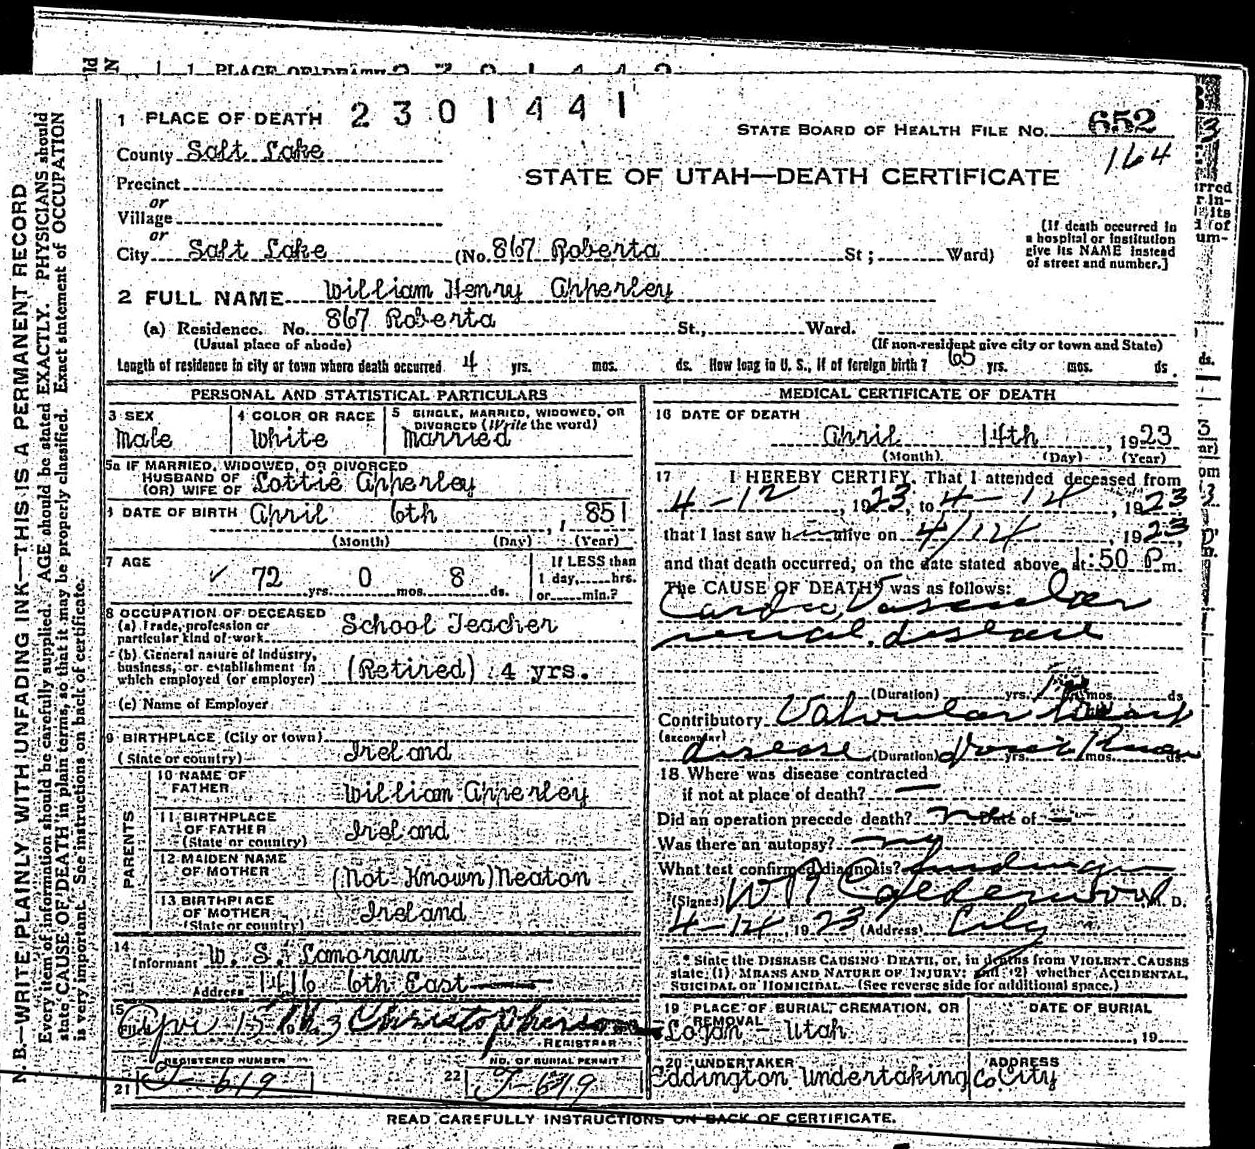 1 PLACE OF DEATH 2301441
STATE BOARD OF HEALTH FILE NO. 652
164
County Salt Lake
STATE OF UTAH—DEATH CERTIFICATE
Precinct
or
Village
or
City Salt Lake (No. 867 Roberta St; Ward)
(If death occurred in a hospital or institution give its NAME instead of street and number.)
2 FULL NAME William Henry Apperley
(a) Residence. No. 867 Roberta St., Ward.
(Usual place of abode) (If non-resident give city or town and State)
Length of residence in city or town where death occurred 4 yrs. mos. ds. How long in U. S., if of foreign birth? 65 yrs. mos. ds.
PERSONAL AND STATISTICAL PARTICULARS
3 SEX Male
4 COLOR OR RACE White
5 SINGLE, MARRIED, WIDOWED, OR DIVORCED (Write the word) Married
5a IF MARRIED, WIDOWED, OR DIVORCED
HUSBAND OF
(OR) WIFE OF Lottie Apperley
6 DATE OF BIRTH April 6th, 1851
(Month) (Day) (Year)
7 AGE 72 yrs. 0 mos. 8 ds.
If LESS than 1 day, hrs. or min.?
8 OCCUPATION OF DECEASED
(a) Trade, profession or particular kind of work School Teacher
(b) General nature of industry, business, or establishment in which employed (or employer) (Retired) 4 yrs.
(c) Name of Employer
9 BIRTHPLACE (City or town)
(State or country) Ireland
PARENTS
10 NAME OF FATHER William Apperley
11 BIRTHPLACE OF FATHER (State or country) Ireland
12 MAIDEN NAME OF MOTHER (Not Known) Neaton
13 BIRTHPLACE OF MOTHER (State or country) Ireland
14 Informant W. S. Lamoraux
Address 1416 6th East
15 Filed Apr 15 1923 Christopherson
REGISTRAR
REGISTERED NUMBER
21 J-619
NO. OF BURIAL PERMIT
22 J-619
MEDICAL CERTIFICATE OF DEATH
16 DATE OF DEATH
April 14th, 1923
(Month) (Day) (Year)
17 I HEREBY CERTIFY, That I attended deceased from
4-12, 1923, to 4-14, 1923
that I last saw h alive on 4/14, 1923,
and that death occurred, on the date stated above, at 1:50 P m.
The CAUSE OF DEATH* was as follows:
Cardio Vascular
renal disease
(Duration) yrs. mos. ds.
Contributory Valvular heart
(Secondary) disease (Duration) yrs. mos. ds.
18 Where was disease contracted
if not at place of death? —
Did an operation precede death? no Date of —
Was there an autopsy? no
What test confirmed diagnosis? findings
(Signed) W R Calderwood M. D.
4-14, 1923 (Address) City
* State the DISEASE CAUSING DEATH, or, in deaths from VIOLENT CAUSES state, (1) MEANS AND NATURE OF INJURY: and (2) whether ACCIDENTAL, SUICIDAL or HOMICIDAL. (See reverse side for additional space.)
19 PLACE OF BURIAL, CREMATION, OR REMOVAL
Logan, Utah
DATE OF BURIAL
, 19
20 UNDERTAKER
Eddington Undertaking Co
ADDRESS
City
READ CAREFULLY INSTRUCTIONS ON BACK OF CERTIFICATE.
N. B.—WRITE PLAINLY, WITH UNFADING INK—THIS IS A PERMANENT RECORD
Every item of information should be carefully supplied. AGE should be stated EXACTLY. PHYSICIANS should
state CAUSE OF DEATH in plain terms, so that it may be properly classified. Exact statement of OCCUPATION
is very important. See instructions on back of certificate.